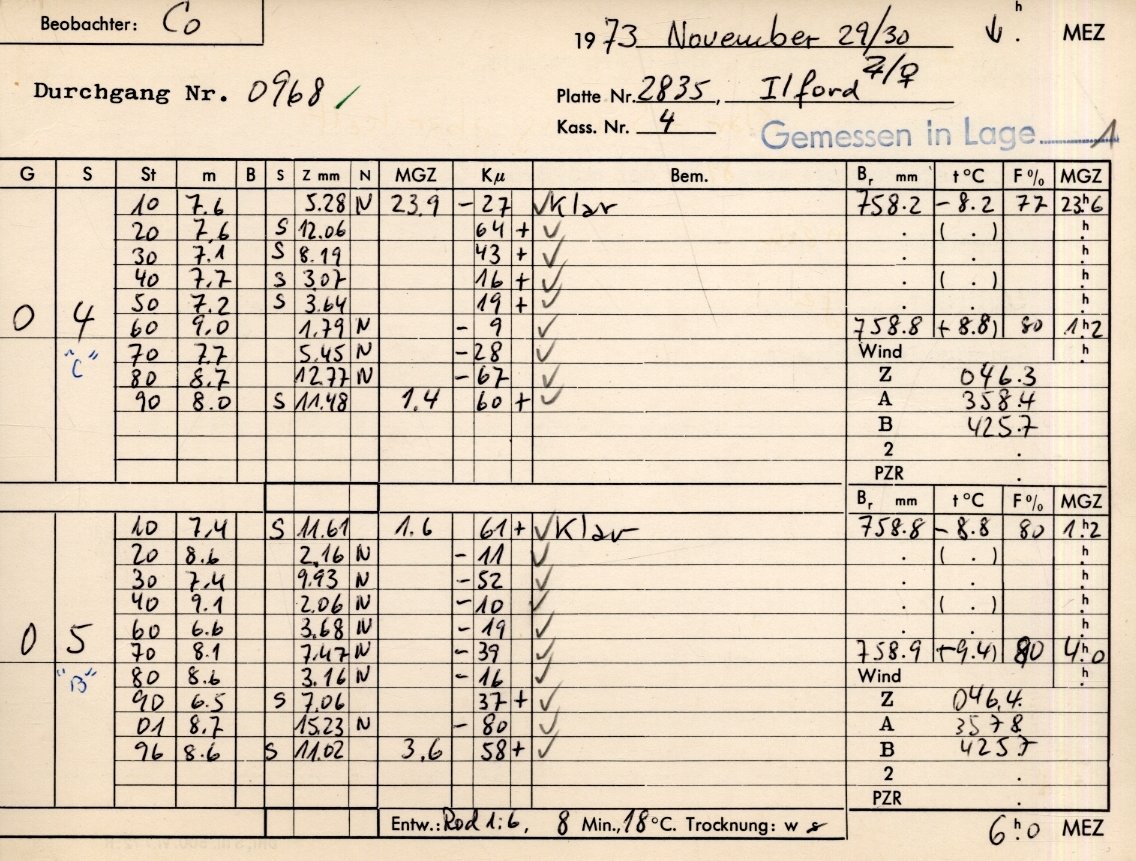 Beobachter: Co
1973 November 29/30 ↓ h . MEZ
Durchgang Nr. 0968 ✓
Platte Nr. 2835, Ilford
Kass. Nr. 4
Gemessen in Lage 1
G S St m B S Z mm N MGZ Kµ Bem. Br mm t °C F % MGZ
10 7.6 5.28 N 23.9 - 27 ✓ Klar 758.2 - 8.2 77 23h6
20 7.6 S 12.06 64 + ✓ . ( . ) h
30 7.1 S 8.19 43 + ✓ . . h
40 7.7 S 3.07 16 + ✓ . ( . ) h
50 7.2 S 3.64 19 + ✓ . . h
0 4 60 9.0 1.79 N - 9 ✓ 758.8 (+ 8.8) 80 1h2
"C" 70 7.7 5.45 N - 28 ✓ Wind h
80 8.7 12.77 N - 67 ✓ Z 046.3
90 8.0 S 11.48 1.4 60 + ✓ A 358.4
B 425.7
2 .
PZR .
Br mm t °C F % MGZ
10 7.4 S 11.61 1.6 61 + ✓ Klar 758.8 - 8.8 80 1h2
20 8.6 2.16 N - 11 ✓ . ( . ) h
30 7.4 9.93 N - 52 ✓ . . h
40 9.1 2.06 N - 10 ✓ . ( . ) h
0 5 60 6.6 3.68 N - 19 ✓ . . h
70 8.1 7.47 N - 39 ✓ 758.9 (-9.4) 80 4h0
"B" 80 8.6 3.16 N - 16 ✓ Wind h
90 6.5 S 7.06 37 + ✓ Z 046.4
01 8.7 15.23 N - 80 ✓ A 357 8
96 8.6 S 11.02 3.6 58 + ✓ B 425 7
2 .
PZR .
Entw.: Rod 1:6, 8 Min., 18 °C. Trocknung: w s 6h.0 MEZ